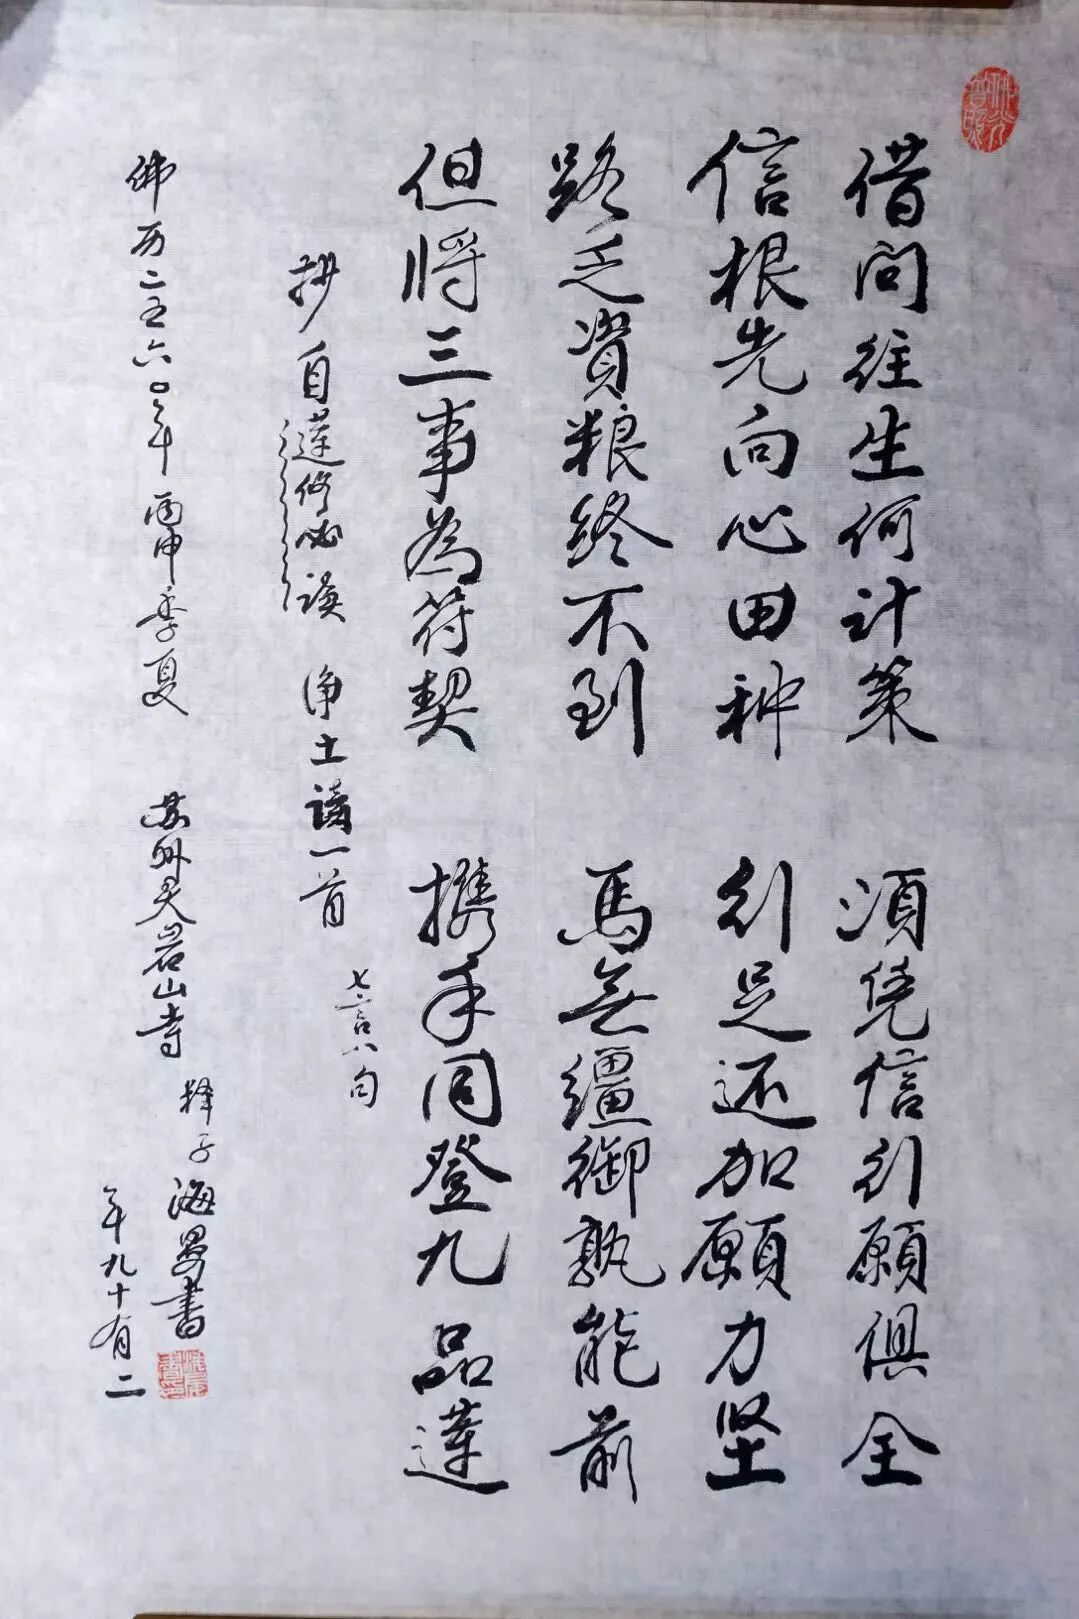 佛光普照
借问往生何计策 须凭信行願俱全
信根先向心田种 行足还加願力坚
路乏資粮终不到 馬無缰御孰能前
但将三事為符契 携手同登九品莲
抄自莲修必读 净土诗一首 七言八句
佛历二五六〇年丙申季夏 苏州灵岩山寺 释子海書
年九十有二